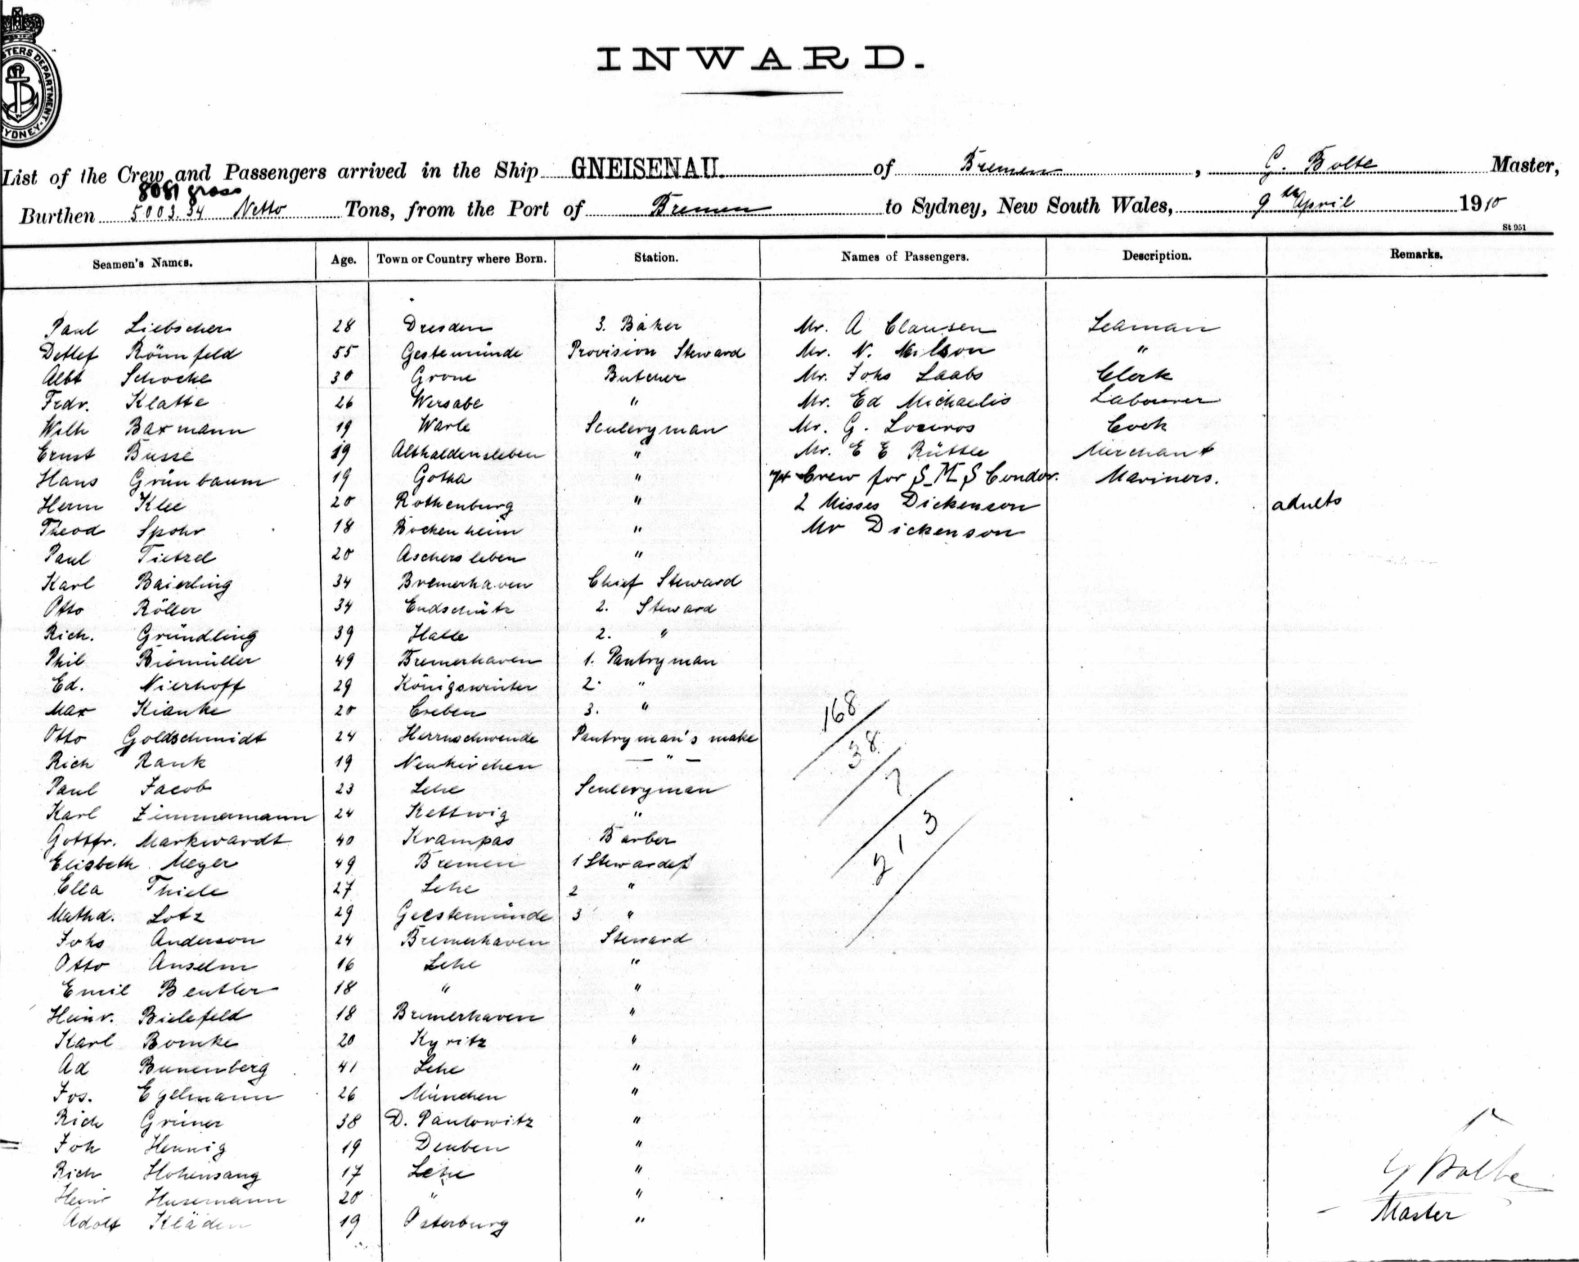 INWARD.
MASTERS DEPARTMENT SYDNEY
List of the Crew and Passengers arrived in the Ship GNEISENAU. of Bremen, G. Bolte Master,
8081 gross
Burthen 5003.34 Netto Tons, from the Port of Bremen to Sydney, New South Wales, 9th April 1910
St 951
Seamen's Names. Age. Town or Country where Born. Station. Names of Passengers. Description. Remarks.
Paul Liebscher 28 Dresden 3. Baker Mr. A Clausen Seaman
Detlef Rönnfeld 55 Gestemünde Provision Steward Mr. N. Nilson "
Albt Schocke 30 Grone Butcher Mr. Johs Laabs Clerk
Frdr. Klatte 26 Wersabe " Mr. Ed Michaelis Labourer
Wilh Baxmann 19 Warle Sculeryman Mr. G. Cook
Ernst Busse 19 Althaldensleben " Mr. E E Rüttle Merchant
Hans Grünbaum 19 Gotha " 74 Crew for S.M.S Condor. Mariners.
Herm Klee 20 Rothenburg " 2 Misses Dickenson adults
Theod Spohr 18 Bockenheim " Mr Dickenson
Paul Tietzel 20 Aschersleben "
Karl Baierling 34 Bremerhaven Chief Steward
Otto Röller 34 Endschütz 2. Steward
Rich. Gründling 39 Halle 2. "
Phil 49 Bremerhaven 1. Pantryman
Ed. Nierhoff 29 Königswinter 2. "
Max Kianke 20 Creben 3. "
Otto Goldschmidt 24 Herrnschwende Pantryman's make
Rich Rank 19 Neukirchen — " —
Paul Jacob 23 Lehe Sculeryman
Karl Zimmermann 24 Kettwig "
Gottfr. Markwardt 40 Krampas Barber
Elisbeth Meyer 49 Bremen 1 Stewardeß
Ella Thiele 27 Lehe 2 "
Mathd. Lotz 29 Geestemünde 3 "
Johs Anderson 24 Bremerhaven Steward
Otto Anselm 16 Lehe "
Emil Beutler 18 " "
Heinr. Bielefeld 18 Bremerhaven "
Karl Bomke 20 Kyritz "
Ad Bunenberg 41 Lehe "
Jos. Egelmann 26 München "
Rich Grüner 38 D. Paulowitz "
Joh Hennig 19 Deuben "
Rich Hohensang 17 Lehe "
Heinr Husemann 20 " "
Adolf Kläden 19 Osterburg "
168
38
7
213
G Bolte
Master